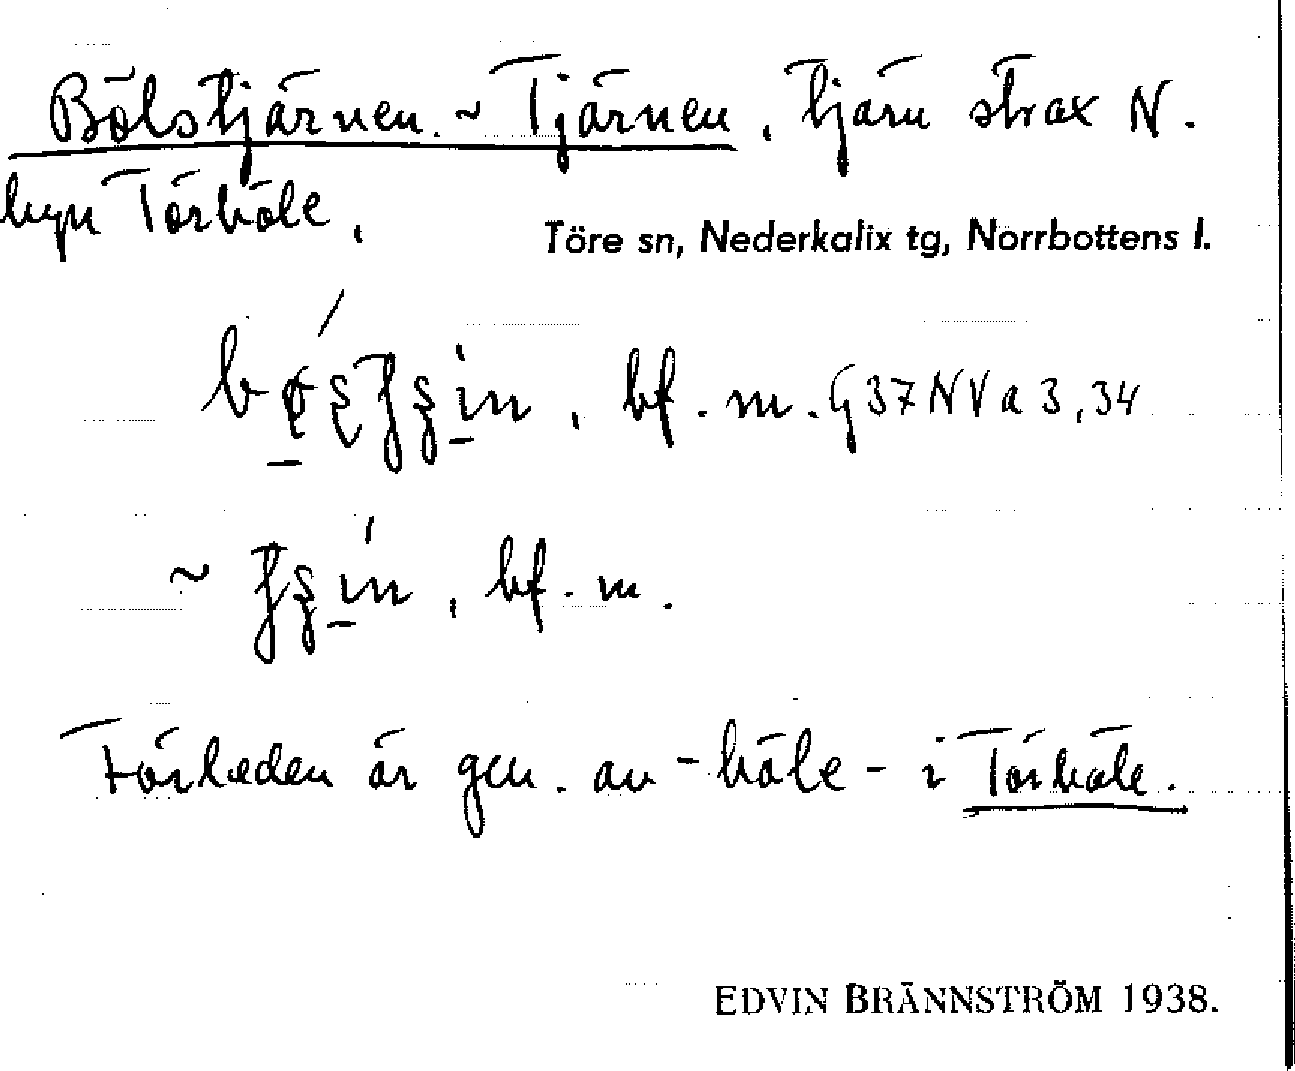 Bölstjärnen. ~ Tjärnen, tjärn strax N.
byn Törböle,
Töre sn, Nederkalix tg, Norrbottens l.
bf. m. G37NVa3,34
~ bf. m.
Förleden är gen. av -böle- i Törböle.
EDVIN BRÄNNSTRÖM 1938.